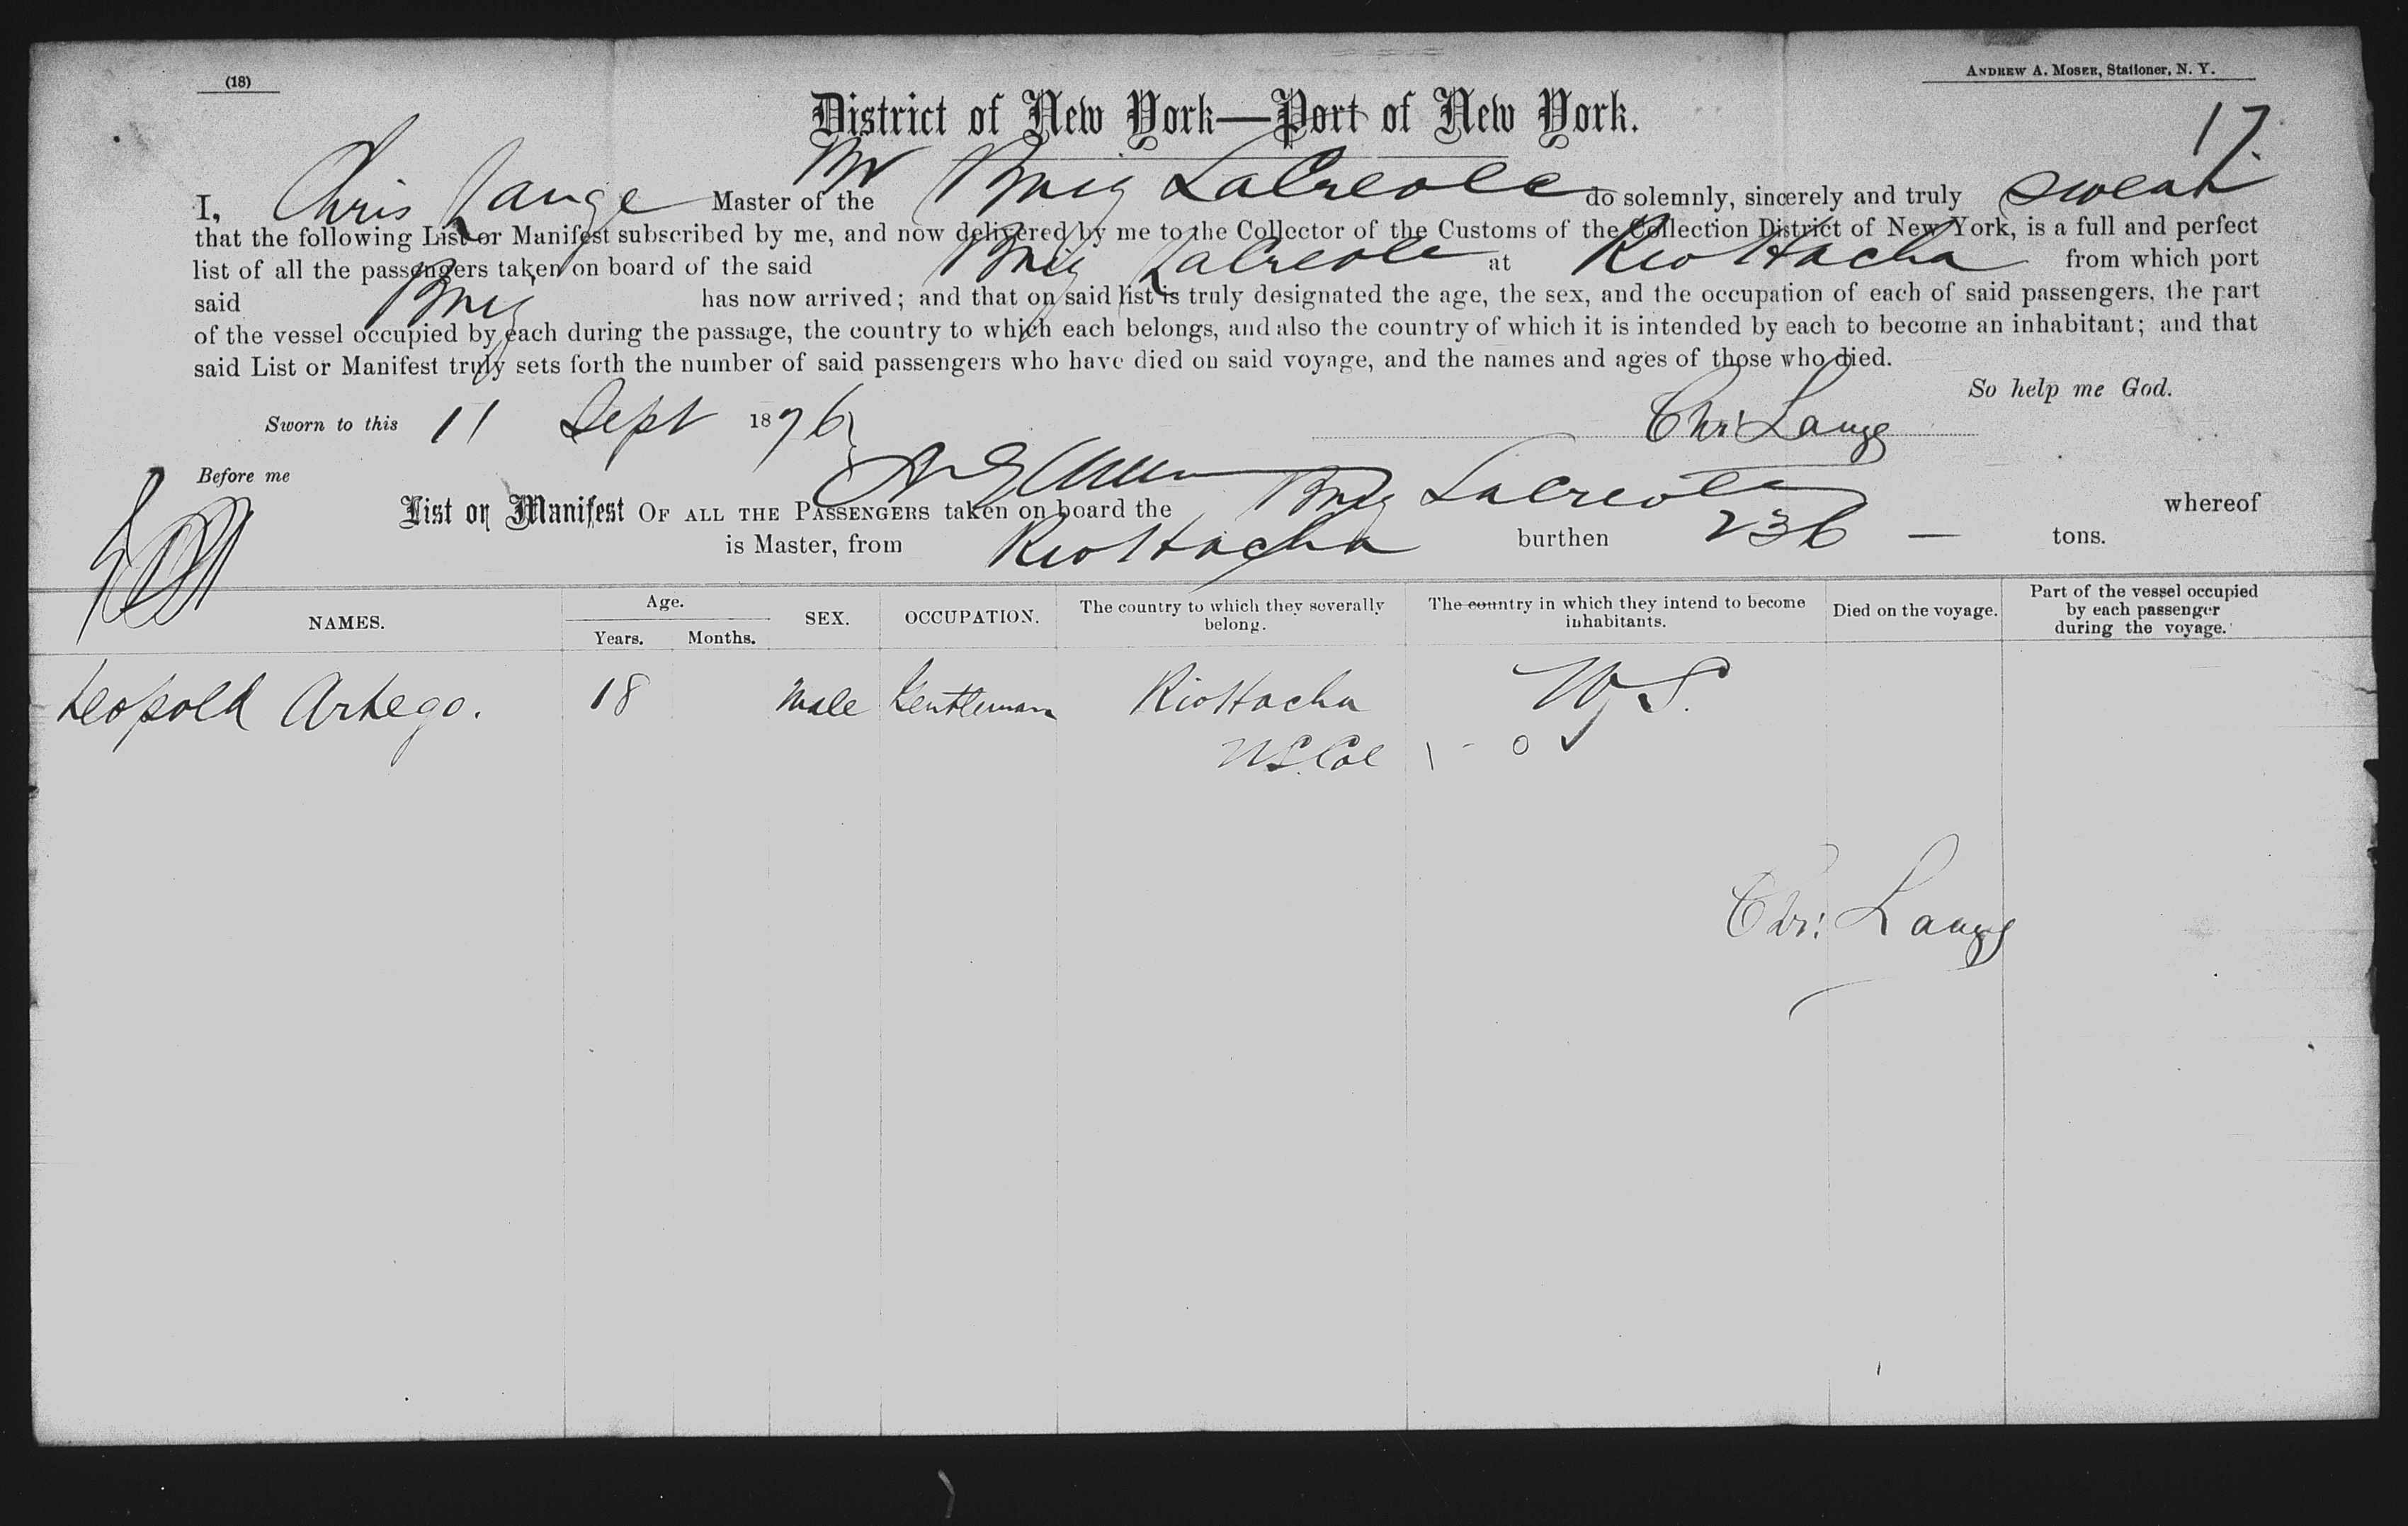 (18)
ANDREW A. MOSER, Stationer, N. Y.
District of New York—Port of New York.
17.
I, Chris Lange Master of the Brig LaCreole do solemnly, sincerely and truly swear
that the following List or Manifest subscribed by me, and now delivered by me to the Collector of the Customs of the Collection District of New York, is a full and perfect
list of all the passengers taken on board of the said Brig LaCreole at Rio Hacha from which port
said Brig has now arrived; and that on said list is truly designated the age, the sex, and the occupation of each of said passengers, the part
of the vessel occupied by each during the passage, the country to which each belongs, and also the country of which it is intended by each to become an inhabitant; and that
said List or Manifest truly sets forth the number of said passengers who have died on said voyage, and the names and ages of those who died.
So help me God.
Sworn to this 11 Sept 1876 Chr: Lange
Before me
List or Manifest OF ALL THE PASSENGERS taken on board the Brig LaCreole whereof
is Master, from Rio Hacha burthen 236 — tons.
NAMES. Age. Years. Months. SEX. OCCUPATION. The country to which they severally belong. The country in which they intend to become inhabitants. Died on the voyage. Part of the vessel occupied by each passenger during the voyage.
Leopold Arhego. 18 Male Gentleman Rio Hacha U.S.
U.S. Col \ - 0 ✓
Chr: Lange